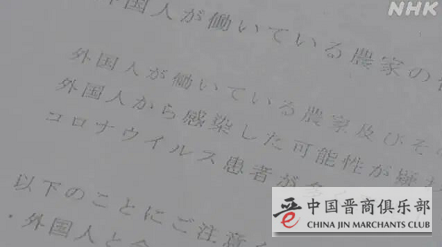 NHK
外国人が働いている農家の
外国人が働いている農家及びそ
外国人から感染した可能性が疑わ
コロナウイルス患者が
以下のことにご注意
・外国人と会
晋
中国晋商俱乐部
CHINA JIN MARCHANTS CLUB